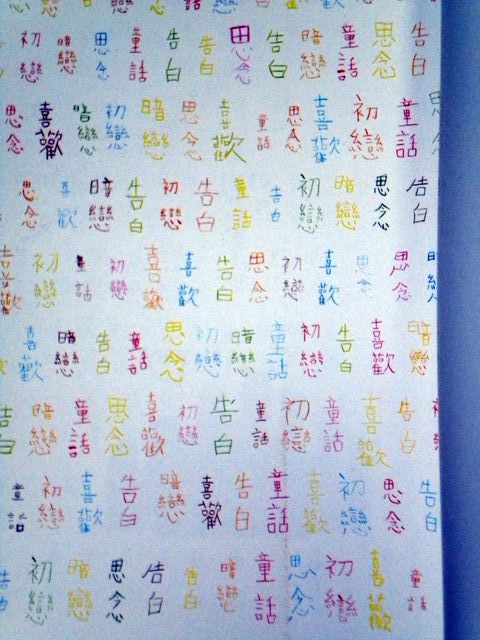 初戀 暗戀 思念 童話 告白 告白 思念 告白 暗戀 童話 思念 告白
思念 喜歡 暗戀 初戀 暗戀 思念 喜歡 童話 思念 喜歡 初戀 童話 思念
思念 喜歡 暗戀 告白 初戀 告白 童話 告白 初戀 暗戀 思念 告白
喜歡 初戀 童話 初戀 喜歡 喜歡 告白 思念 初戀 喜歡 思念 思念 暗戀
喜歡 暗戀 告白 童話 思念 初戀 暗戀 童話 初戀 告白 喜歡 暗戀
告白 暗戀 童話 思念 喜歡 初戀 告白 童話 初戀 童話 喜歡 告白
童話 初戀 喜歡 告白 暗戀 喜歡 告白 童話 喜歡 初戀 思念 告白
告白 初戀 暗戀 思念 告白 告白 暗戀 童話 思念 初戀 喜歡 童話